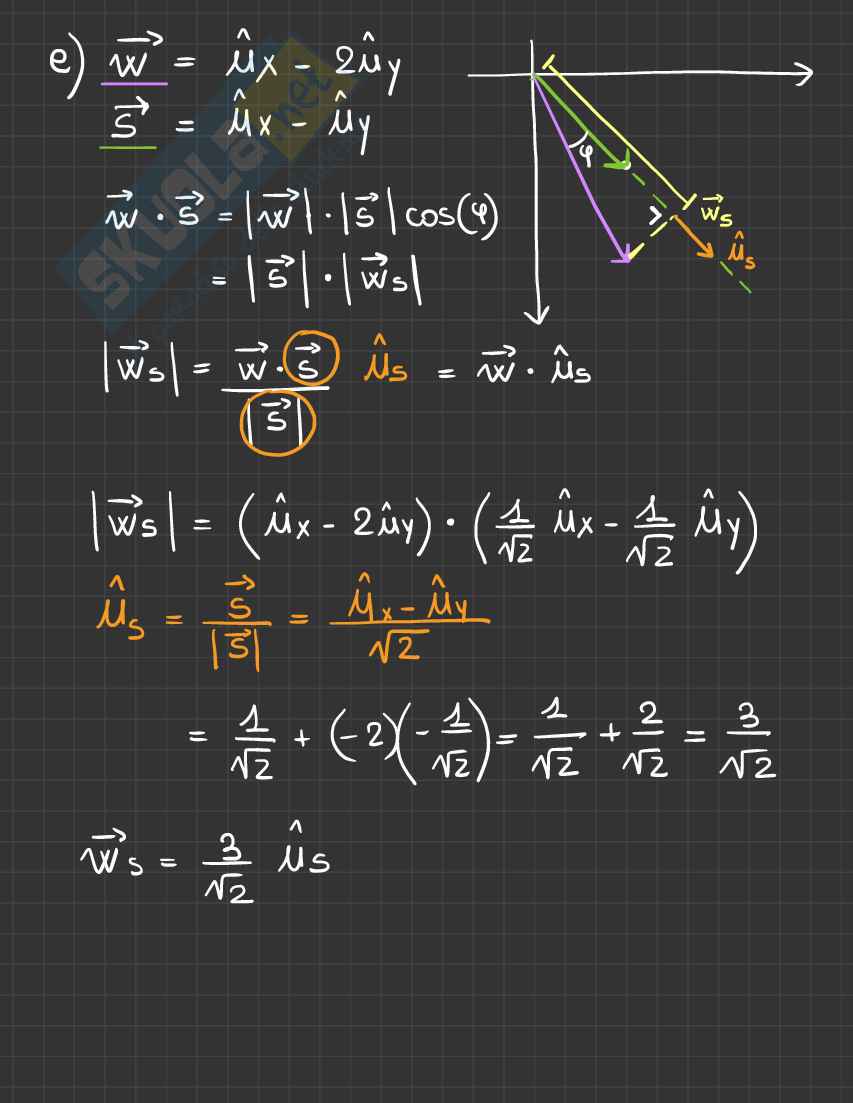 e) w⃗ = μ̂x - 2μ̂y
s⃗ = μ̂x - μ̂y
w⃗ · s⃗ = |w⃗| · |s⃗| cos(φ)
= |s⃗| · |w⃗s|
φ
w⃗s
μ̂s
|w⃗s| = w⃗ · s⃗ / |s⃗| μ̂s = w⃗ · μ̂s
|w⃗s| = (μ̂x - 2μ̂y) · (1/√2 μ̂x - 1/√2 μ̂y)
μ̂s = s⃗ / |s⃗| = μ̂x - μ̂y / √2
= 1/√2 + (-2)(-1/√2) = 1/√2 + 2/√2 = 3/√2
w⃗s = 3/√2 μ̂s
SKUOLA.net